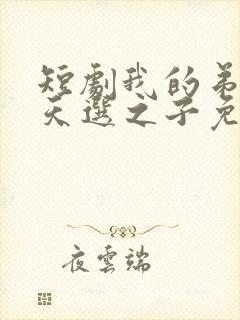 短劇我的弟
天選之子免
夜雲端